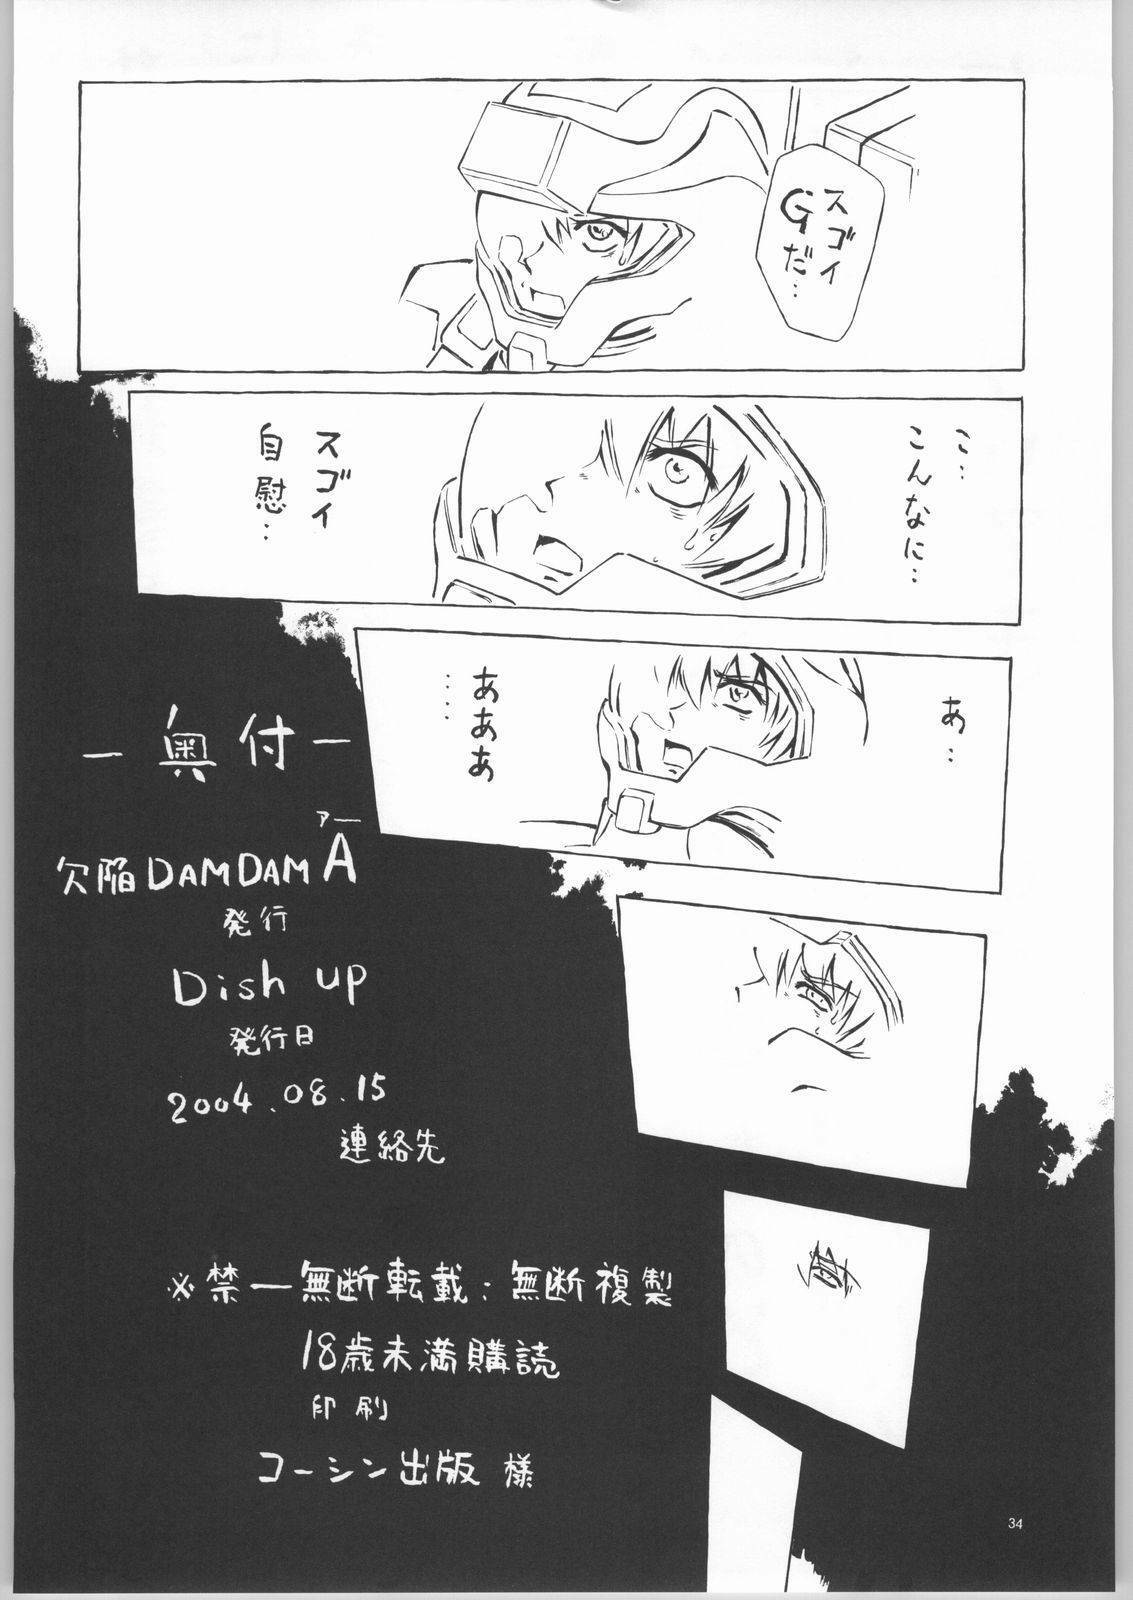 スゴイ
Gだ…
こ…
こんなに…
スゴイ
自慰…
あ…
あああ
……
ー奥付ー
アー
欠陥DAMDAM A
発行
Dish up
発行日
2004.08.15
連絡先
※禁ー無断転載：無断複製
18歳未満購読
印刷
コーシン出版 様
34